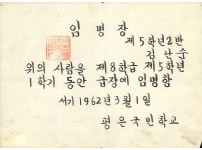 임명장
제5학년2반
김난순
위의 사람을 제8학급 제5학년
1학기 동안 급장에 임명함
서기 1962年3月1일
평은국민학교